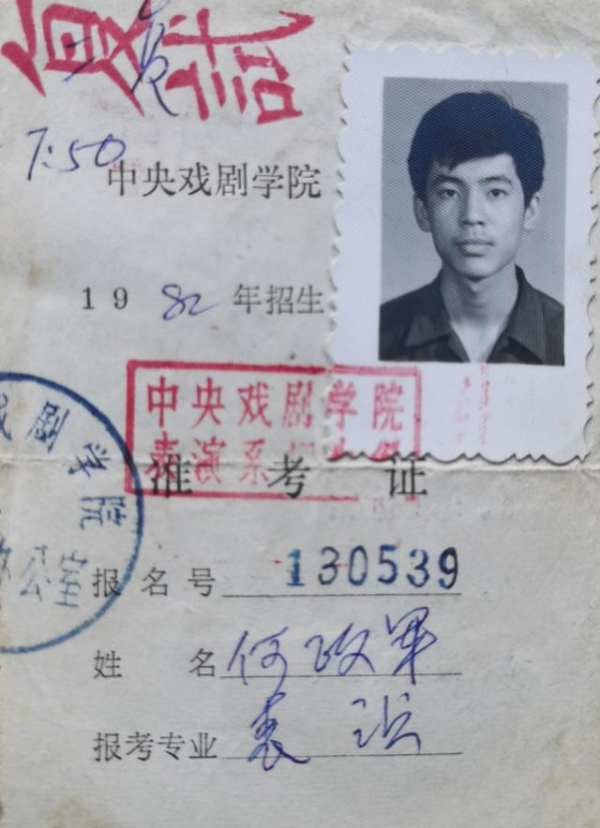 复试
7:50
中央戏剧学院
1982年招生
中央戏剧学院
表演系
准考证
戏剧学院
公室
报名号 130539
姓名 何政军
报考专业 表演